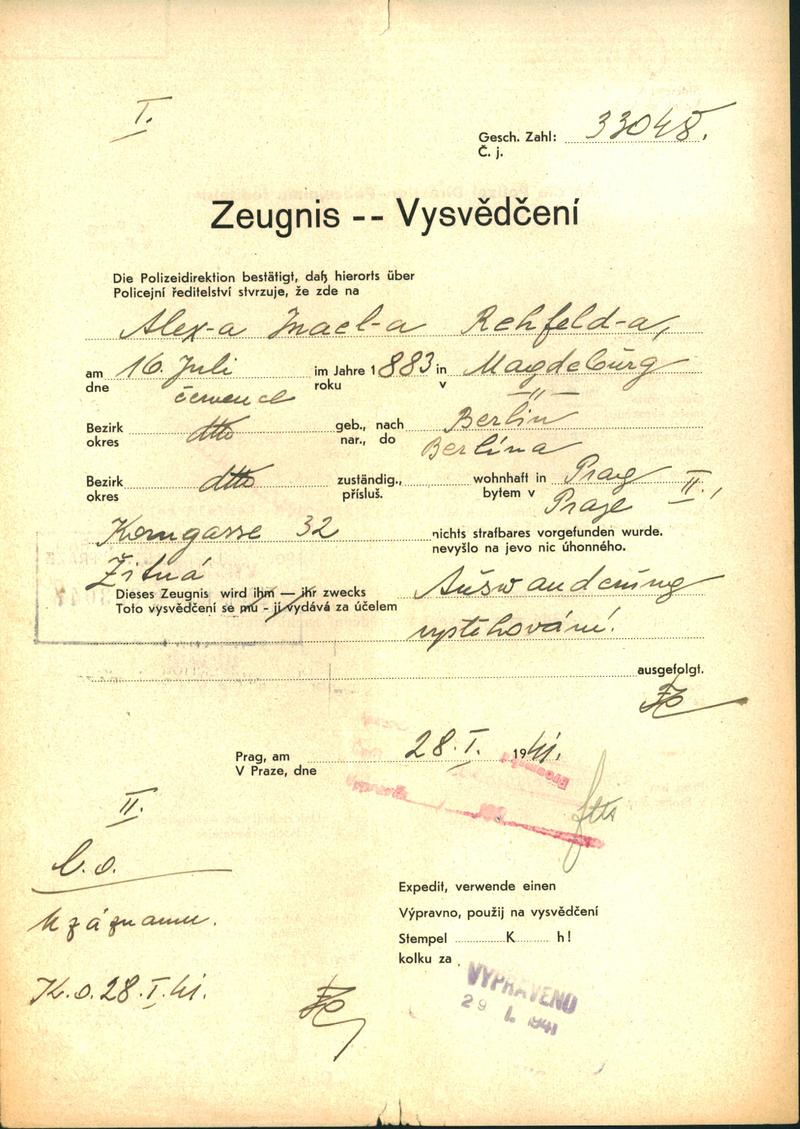 I.
Gesch. Zahl: 33048.
Č. j.
Zeugnis -- Vysvědčení
Die Polizeidirektion bestätigt, daß hierorts über
Policejní ředitelství stvrzuje, že zde na
Alex-a Israel-a Rehfeld-a,
am 16. Juli im Jahre 1883 in Magdeburg
dne červenec roku v -"-
Bezirk dtto geb., nach Berlin
okres nar., do Berlína
Bezirk dtto zuständig., wohnhaft in Prag II.,
okres přísluš. bytem v Praze
Korngasse 32 nichts strafbares vorgefunden wurde.
nevyšlo na jevo nic úhonného.
Žitná
Dieses Zeugnis wird ihm — ihr zwecks Auswanderung
Toto vysvědčení se mu - jí vydává za účelem
vystěhování.
ausgefolgt.
Prag, am 28. I. 1941.
V Praze, dne
II.
K záznamu.
K.o. 28. I. 41.
Expedit, verwende einen
Výpravno, použij na vysvědčení
Stempel K h!
kolku za
VYPRAVENO
29 I. 1941